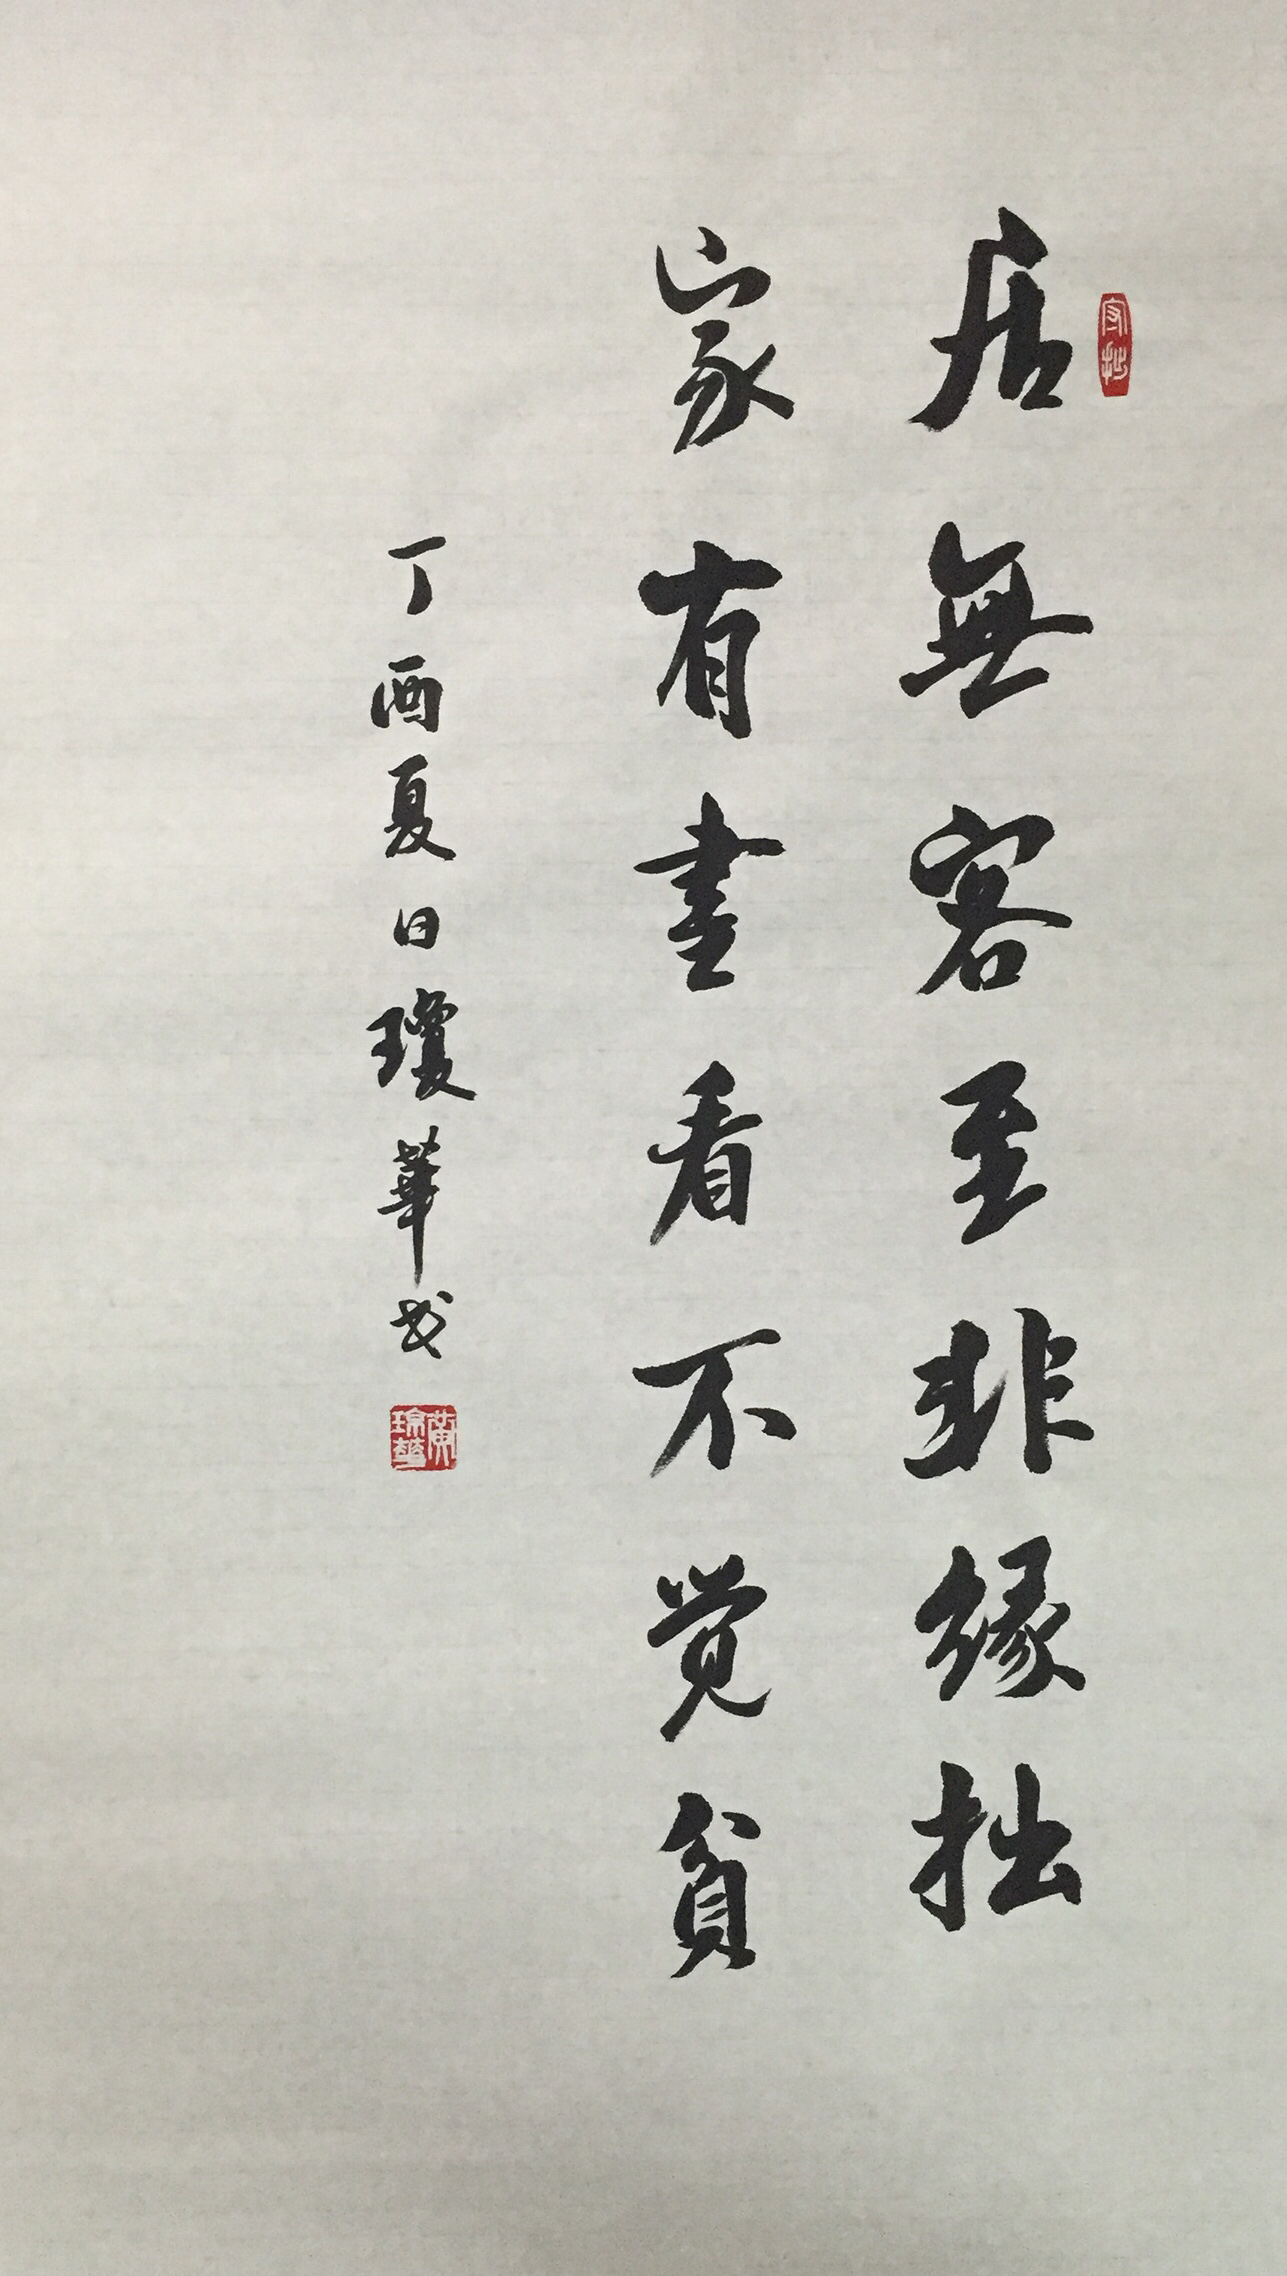 居無客至非緣拙
家有書看不覺貧
丁酉夏日瓊華書
守拙
黄瓊華